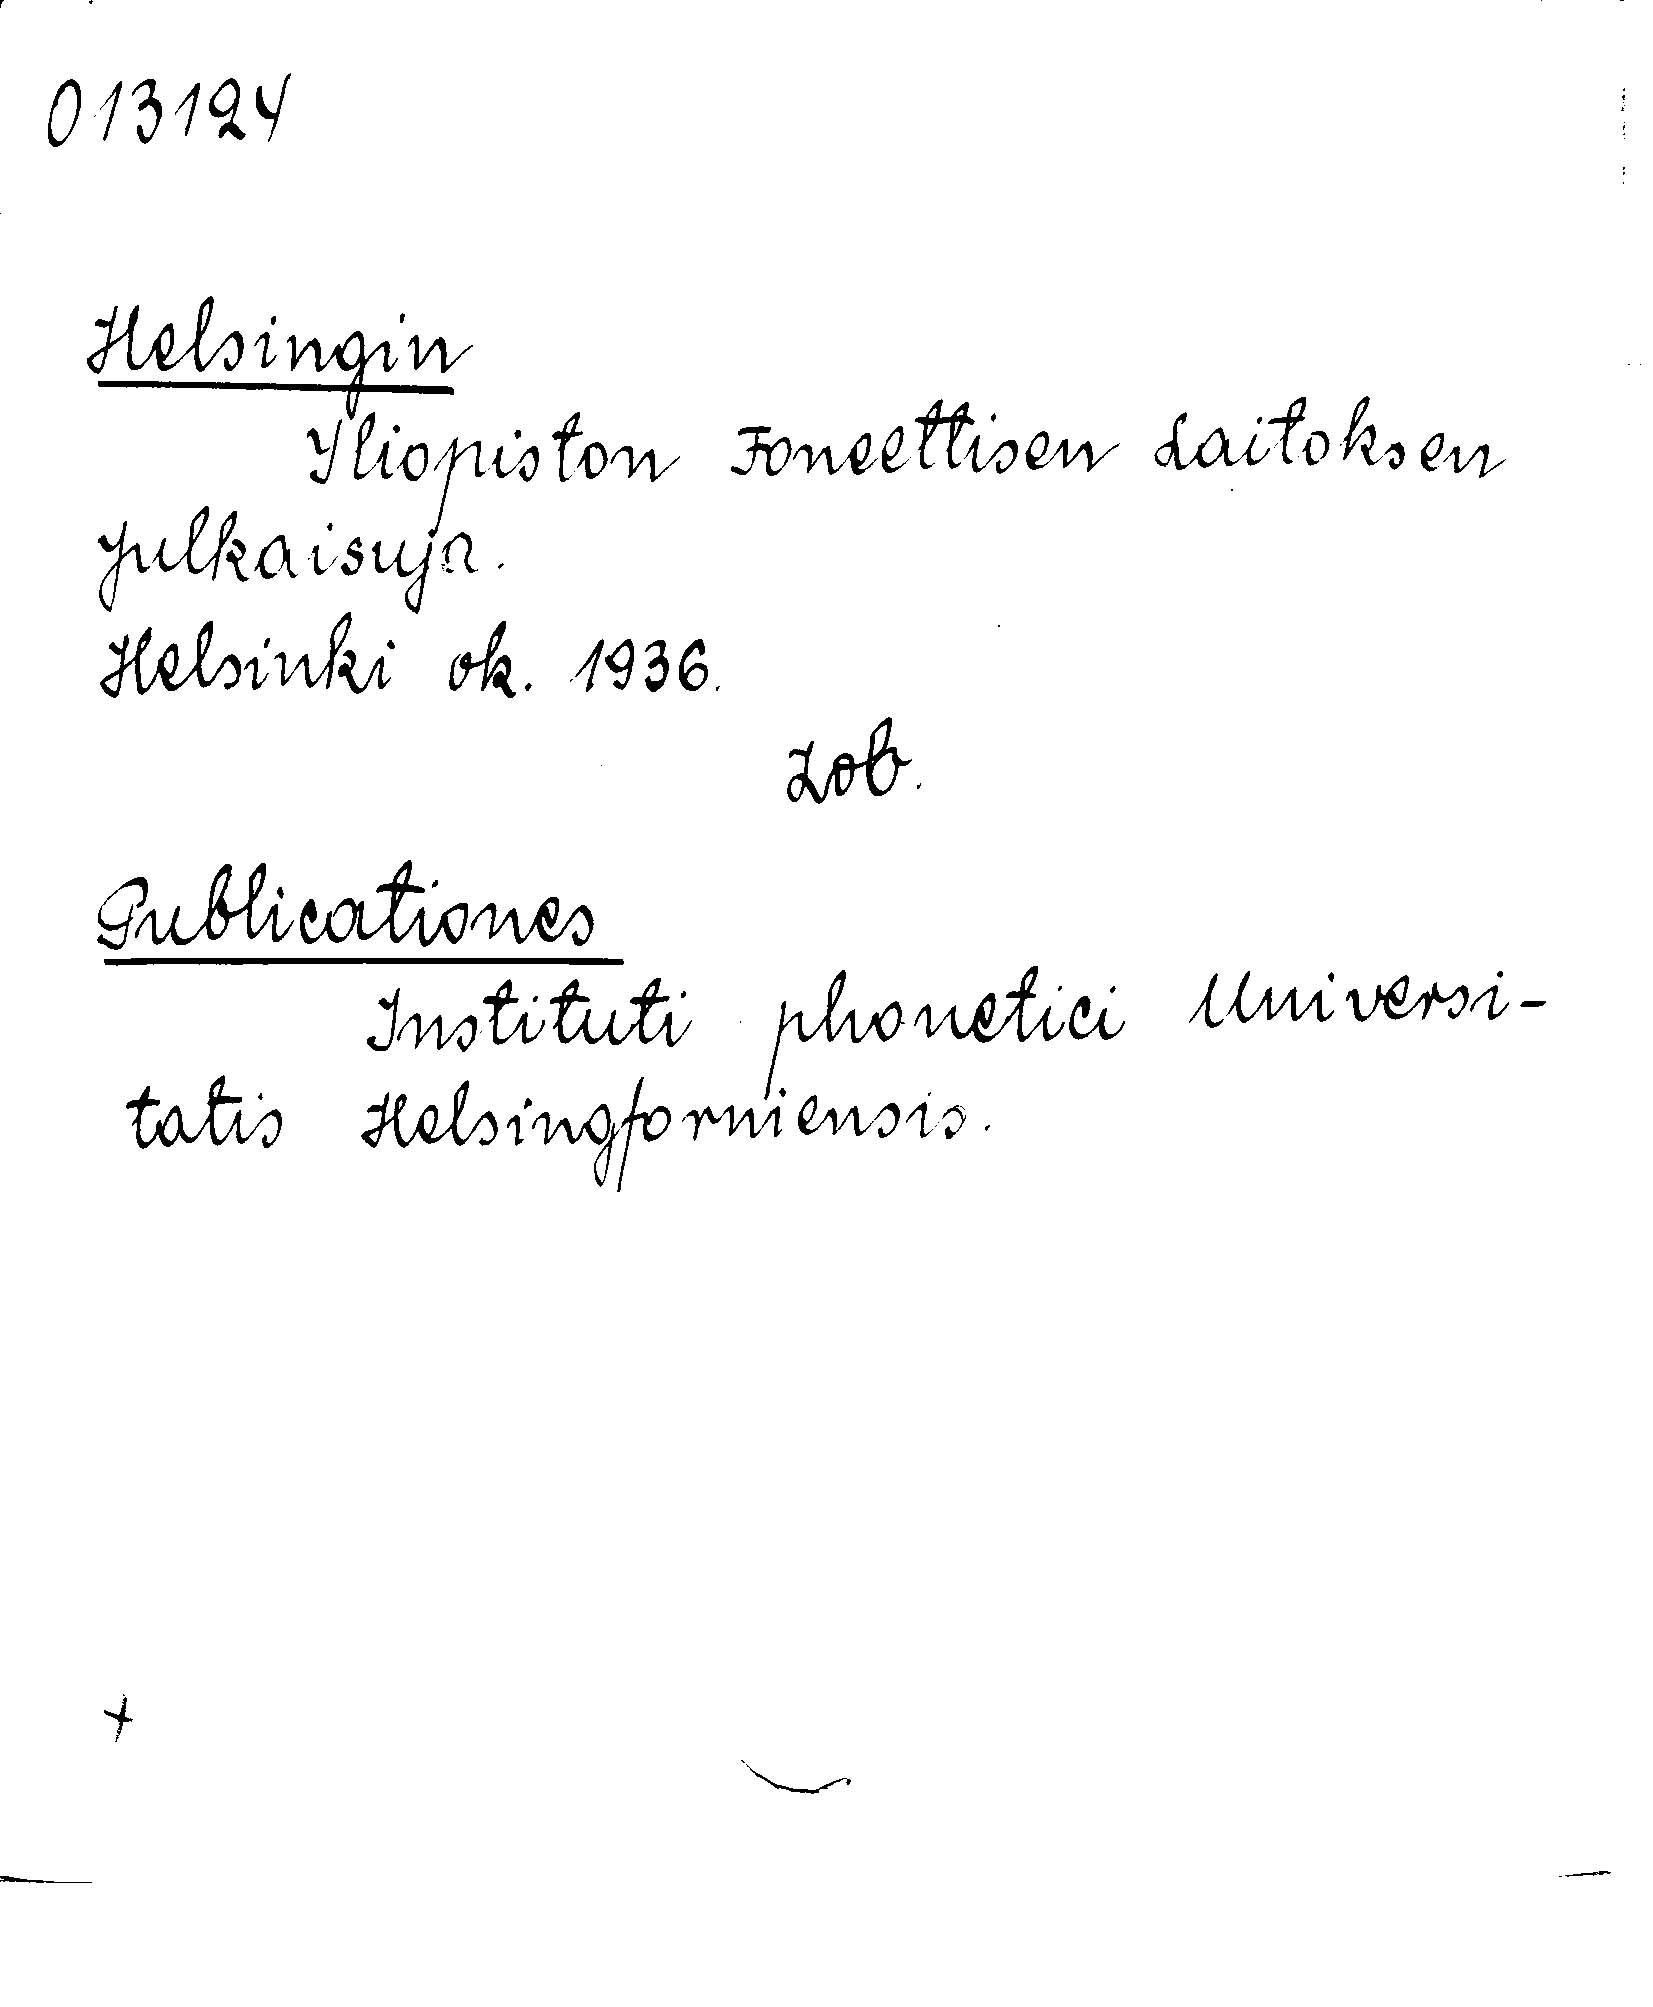 013124
Helsingin
Yliopiston Foneettisen Laitoksen
julkaisuja.
Helsinki ok. 1936.
Zob.
Publicationes
Instituti phonetici Universi-
tatis Helsingforniensis.
+